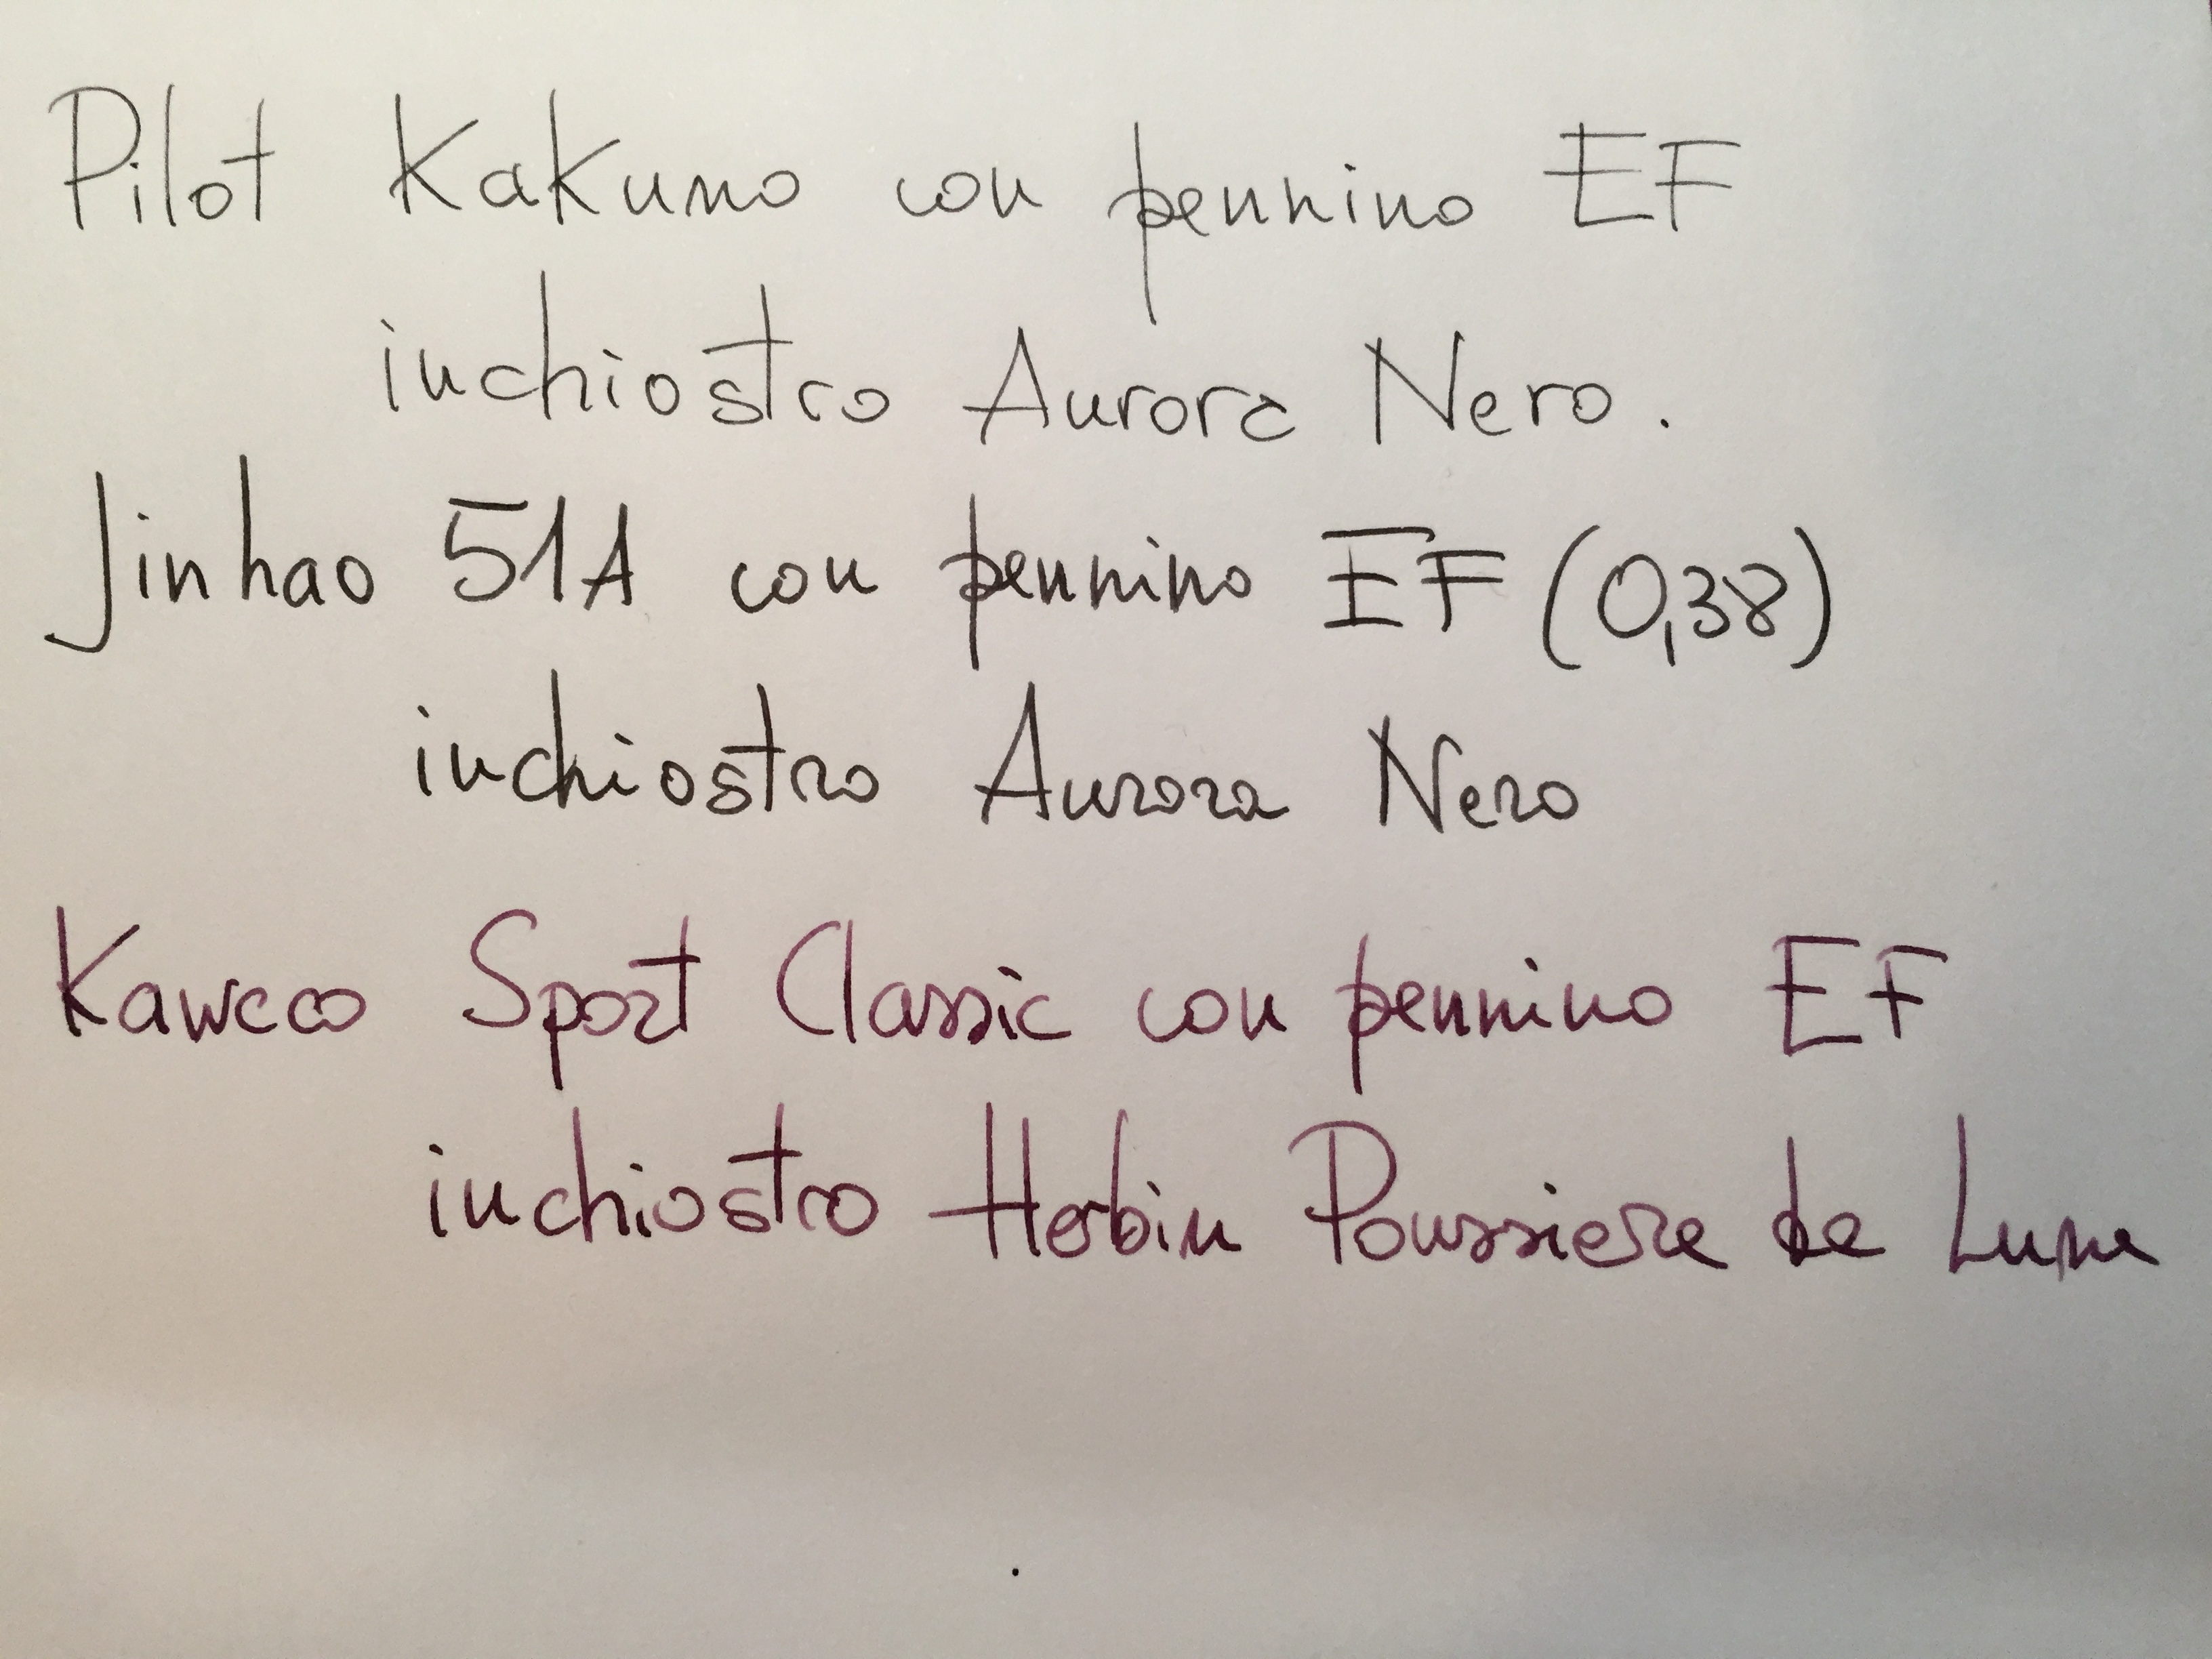 Pilot Kakuno con pennino EF
inchiostro Aurora Nero.
Jinhao 51A con pennino EF (0,38)
inchiostro Aurora Nero
Kaweco Sport Classic con pennino EF
inchiostro Herbin Poussiere de Lune